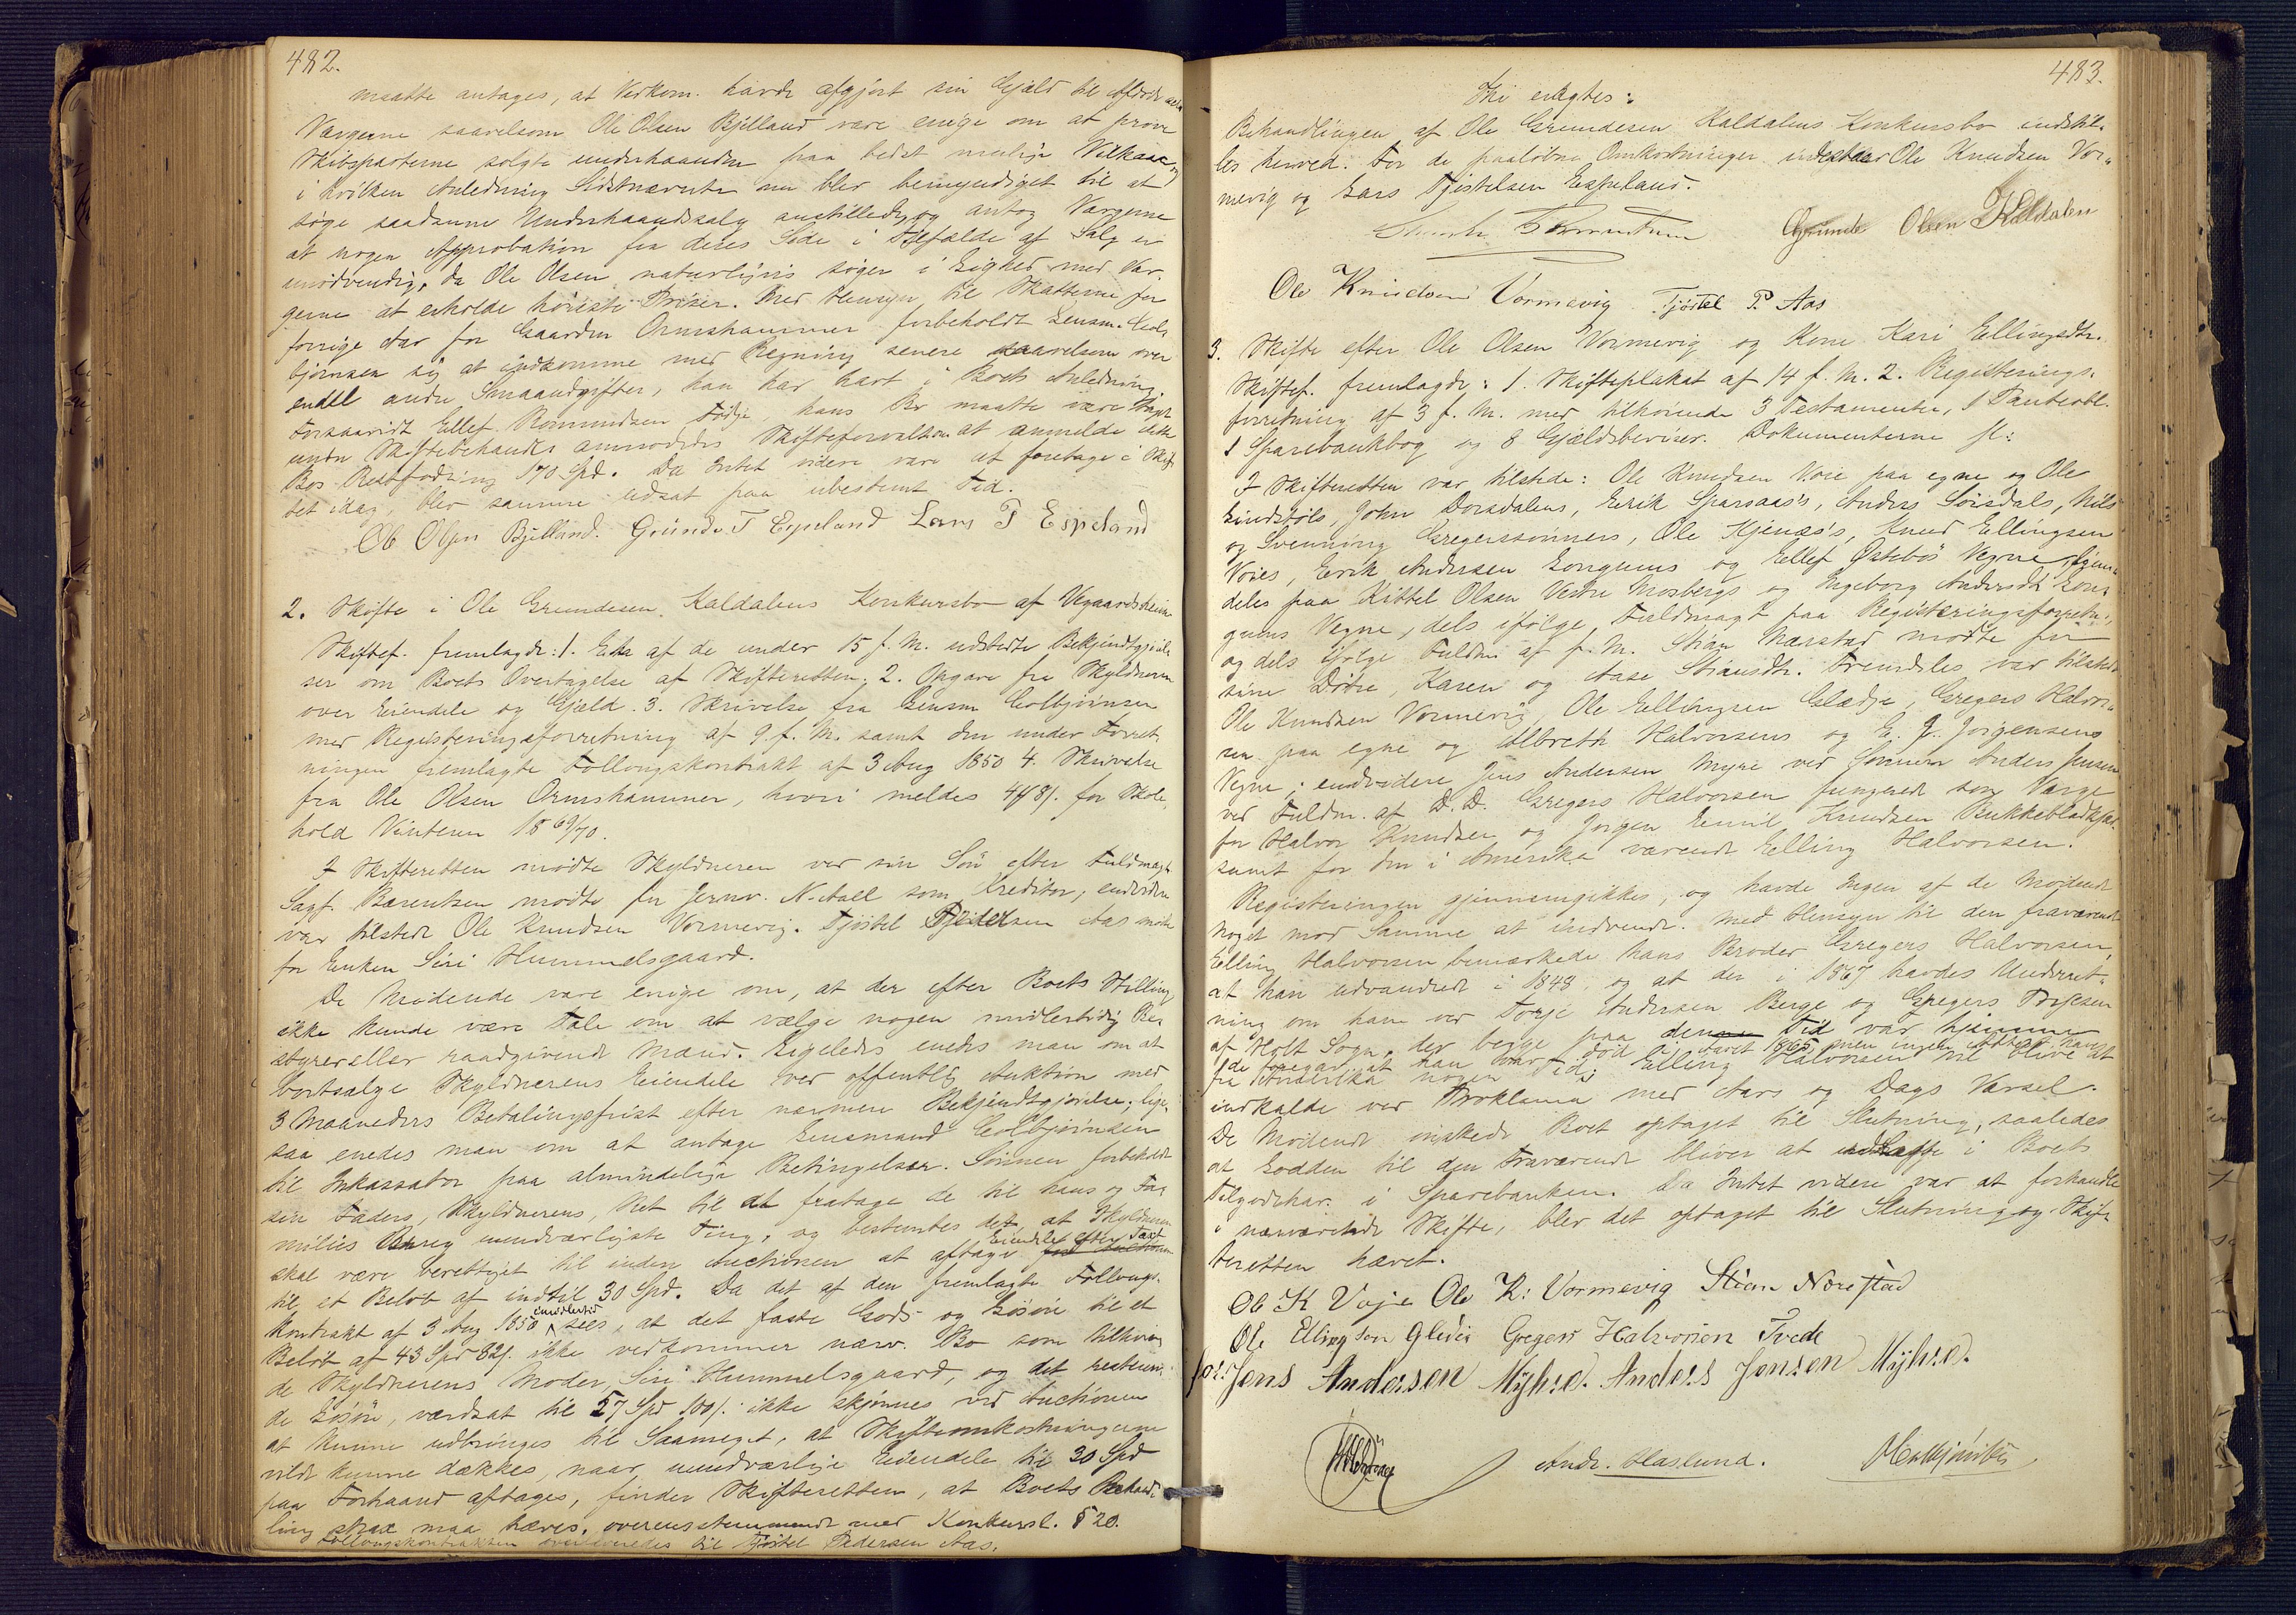 482.
maatte antages, at Vedkom. havde afgjort sin Gjæld til Afdøde
Værgerne saavelsom Ole Olsen Bjelland vare enige om at prøve
Skibsparterne solgte underhaanden paa bedst mulige Vilkaar, og
i hvilken Anledning Sidstnævnte nu blev bemyndiget til at
søge saadanne Underhaandssalg anstillede, og antog Værgerne
at nogen Approbation fra deres Side i Tilfælde af Salg er
unødvendig, da Ole Olsen naturligvis søger i Lighed med Vær-
gerne at erholde høieste Priser. Med Hensyn til Skatterne for
forrige Aar for Gaarden Ormshammer forbeholdt Lensm. Col-
bjørnsen sig at indkomme med Regning senere saavelsom over
endel andre Smaaudgifter, han har havt i Boets Anledning.
Forsaavidt Ellef Romundsen hans Bo maatte være taget
under Skiftebehandl. anmodedes Skifteforvalteren at anmelde dette
Bos Restfodring 170 Spd. Da Intet videre var at foretage i Skif-
tet idag, blev samme udsat paa ubestemt Tid.
Ole Olsen Bjelland. Grunde T Espeland Lars T Espeland
2. Skifte i Ole Grundesen Kaldalens Konkursbo af Vegaardsheien
Skiftef. fremlagde: 1. Extr. af de under 15 f. M. udstedte Bekjendtgjørel-
ser om Boets Overtagelse af Skifteretten. 2. Opgave fra Skyldneren
over Eiendele og Gjæld. 3. Skrivelse fra Lensm Colbjørnsen
med Registreringsforretning af 9. f. M. samt den under Forret-
ningen fremlagte Follougskontrakt af 3 Aug 1850 4. Skrivelse
fra Ole Olsen Ormshammer, hvori meldes for Skole-
hold Vinteren 1869/70.
I Skifteretten mødte Skyldneren ved sin Søn efter Fuldmagt
Sagf. Berentsen mødte for Jernv. N. Aall som Kreditor; endvidere
var tilstede Ole Knudsen Vormevig. Tjøstel Pedersen Aas mødte
for Enken Siri Hummelsgaard.
De Mødende vare enige om, at der efter Boets Stilling
ikke kunde være Tale om at vælge nogen midlertidig Be-
styrer eller raadgivende Mænd. Ligeledes enedes man om at
bortsælge Skyldnerens Eiendele ved offentlig Auktion med
3 Maaneders Betalingsfrist efter nærmere Bekjendtgjørelse; lige-
saa enedes man om at antage Lensmand Colbjørnsen
til Inkassator paa almindelige Betingelser. Sønnen forbeholdt
sin Faders, Skyldnerens, Ret til at fratage de til hans og Fa-
milies Brug uundværligste Ting, og bestemtes det, at Skyldneren
skal være berettiget til inden Auctionen at aftage Eiendele efter Taxt
til et Beløb af indtil 30 Spd. Da det af den fremlagte Follougs-
kontrakt af 3 Aug 1850 imidlertid sees, at det faste Gods og Løsøre til et
Beløb af 43 Spd 82 s. ikke vedkommer nærv. Bo som tilhøren-
de Skyldnerens Moder, Siri Hummelsgaard, og det resteren-
de Løsøre, værdsat til 57 Spd 100 s. ikke skjønnes ved Auctionen
at kunne udbringes til Saameget, at Skifteomkostningerne
vilde kunne dækkes, naar uundværlige Eiendele til 30 Spd
paa Forhaand aftages, finder Skifteretten, at Boets Behand-
ling strax maa hæves, overensstemmende med Konkursl. § 20.
Follougskontrakten overleveredes til Tjøstel Pedersen Aas.
483.
Thi eragtes:
Behandlingen af Ole Grundesen Kaldalens Konkursbo indstil-
les herved. For de paaløbne Omkostninger indestaar Ole Knudsen Vor-
mevig og Lars Tjøstelsen Espeland.
Grunde Olsen Kaldalen
Ole Knudsen Vormevig Tjöstel P. Aas
3. Skifte efter Ole Olsen Vormevig og Kone Kari Ellingsdtr.
Skiftef. fremlagde: 1. Skifteplakat af 14 f. M. 2. Registrerings-
forretning af 3 f. M. med tilhørende 3 Testamenter, 1 Panteobl.
1 Sparebankbog og 8 Gjældsbeviser. Dokumenterne
I Skifteretten var tilstede: Ole Knudsen Voie paa egne og Ole
Lindstøls, John Dorsdalens, Erik Sparsaas's, Anders Sørsdals, Nils
og Svenning Gregerssønners, Ole Kjenæs's, Knud Ellingsen
Voies, Erik Andersen Longums og Ellef Østebøs Vegne, ligele-
deles paa Kittel Olsen Vestre Mosbergs og Ingeborg Andersdt. Lon-
gums Vegne, dels ifølge Fuldmagt paa Registreringsforretn.,
og dels ifølge Fuldm. af f. M. Stian Nærstad mødte for
sine Døtre, Karen og Aase Stiansdtr. Fremdeles var tilstede
Ole Knudsen Vormevig, Ole Ellingsen Glædje, Gregers Halvor-
sen paa egne og Albreth Halvorsens og E. J. Jørgensens
Vegne; endvidere Jens Andersen Myre ved Sønnen Anders Jensen
ved Fuldm. af D. D. Gregers Halvorsen fungerede som Værge
for Halvor Knudsen og Jørgen Emil Knudsen
samt for den i Amerika værende Elling Halvorsen.
Registreringen gjennemgikkes, og havde Ingen af de Mødende
Noget mod Samme at indvende. Med Hensyn til den fraværende
Elling Halvorsen bemærkede hans Broder Gregers Halvorsen,
at han udvandrede i 1848, og at der i 1867 havdes Underret-
ning om ham ved Torje Andersen Berge og Gregers Terjesen
af Holt Sogn, der begge paa denne Tid var hjemme
fra Amerika nogen Tid; Elling Halvorsen vil blive at
indkalde ved Proklama med Aars og Dags Varsel.
De Mødende ønskede Boet optaget til Slutning, saaledes
at Lodden til den Fraværende bliver at udlægge i Boets
Tilgodehav. i Sparebanken. Da Intet videre var at forhandle
i nærværende Skifte, blev det optaget til Slutning og Skif-
teretten hævet.
Ole K Voje Ole K: Vormevig Stian Nærestad
Ole Ellingsen Gledie Gregers Halvorsen Tvede
for: Jens Andersen Myhre. Anders Jensen Myhre.
Andr. Haslund.